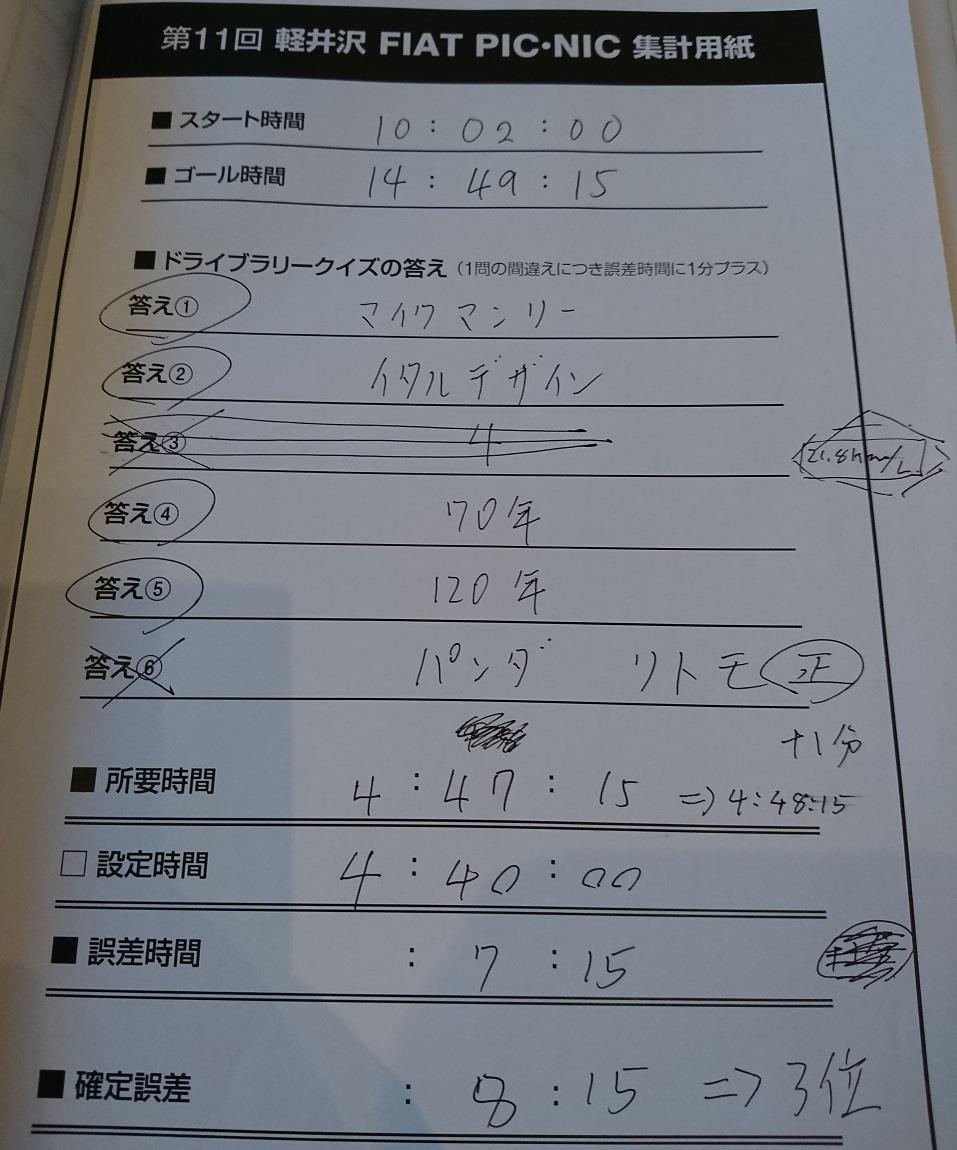 第11回 軽井沢 FIAT PIC・NIC 集計用紙
■ スタート時間 10:02:00
■ ゴール時間 14:49:15
■ ドライブラリークイズの答え（1問の間違えにつき誤差時間に1分プラス）
答え① マイクマンリー
答え② イタルデザイン
答え③ 4 21.8km/L
答え④ 70年
答え⑤ 120年
答え⑥ パンダ リトモ 正
+1分
■ 所要時間 4:47:15 ⇒ 4:48:15
□ 設定時間 4:40:00
■ 誤差時間 : 7:15
■ 確定誤差 : 8:15 ⇒ 3位